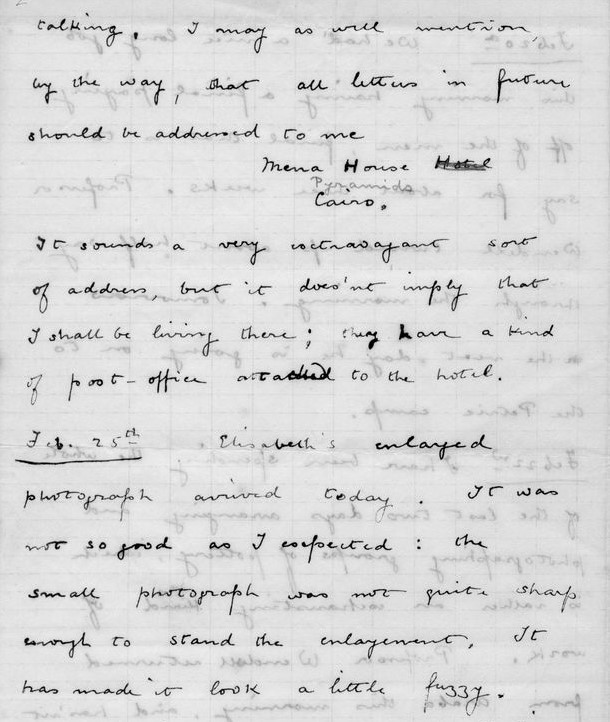 talking. I may as well mention,
by the way, that all letters in future
should be addressed to me
Mena House Hotel
Pyramids
Cairo.
It sounds a very extravagant sort
of address, but it does'nt imply that
I shall be living there; they have a kind
of post-office attached to the hotel.
Feb. 25th Elisabeth's enlarged
photograph arrived today. It was
not so good as I expected: the
small photograph was not quite sharp
enough to stand the enlagement. It
has made it look a little fuzzy.